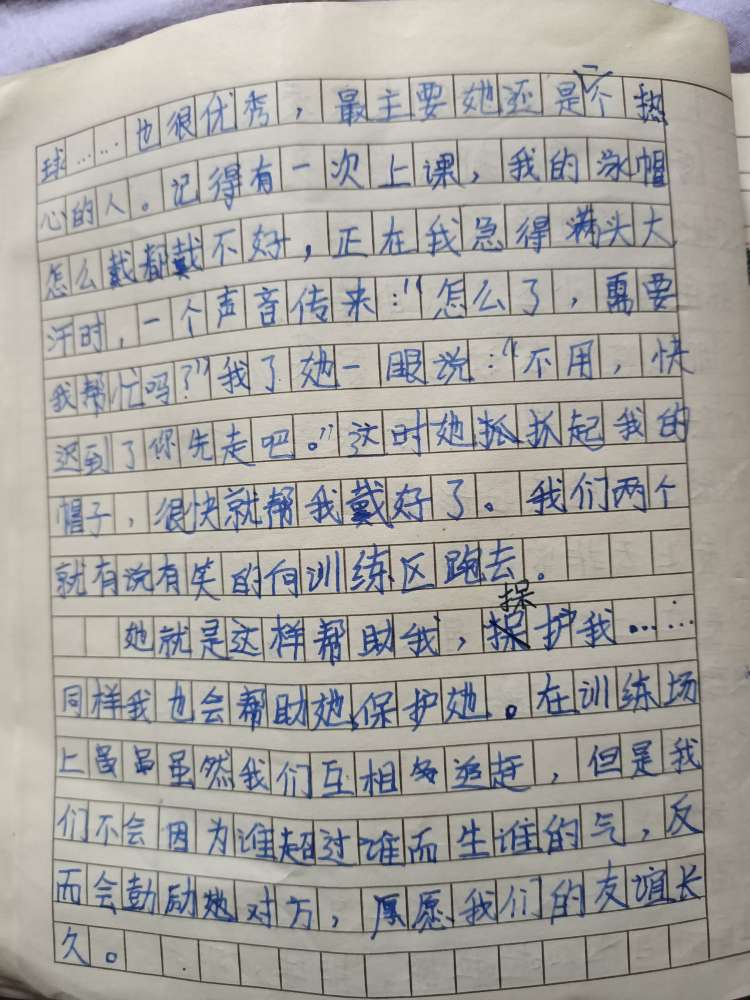 球……也很优秀，最主要她还是一个热
心的人。记得有一次上课，我的泳帽
怎么戴都戴不好，正在我急得满头大
汗时，一个声音传来："怎么了，需要
我帮忙吗？"我了她一眼说："不用，快
迟到了你先走吧。"这时她抓抓起我的
帽子，很快就帮我戴好了。我们两个
就有说有笑的向训练区跑去。
她就是这样帮助我，保护我……
同样我也会帮助她,保护她。在训练场
上虽虽虽然我们互相追赶，但是我
们不会因为谁超过谁而生谁的气，反
而会鼓励她对方，愿我们的友谊长
久。